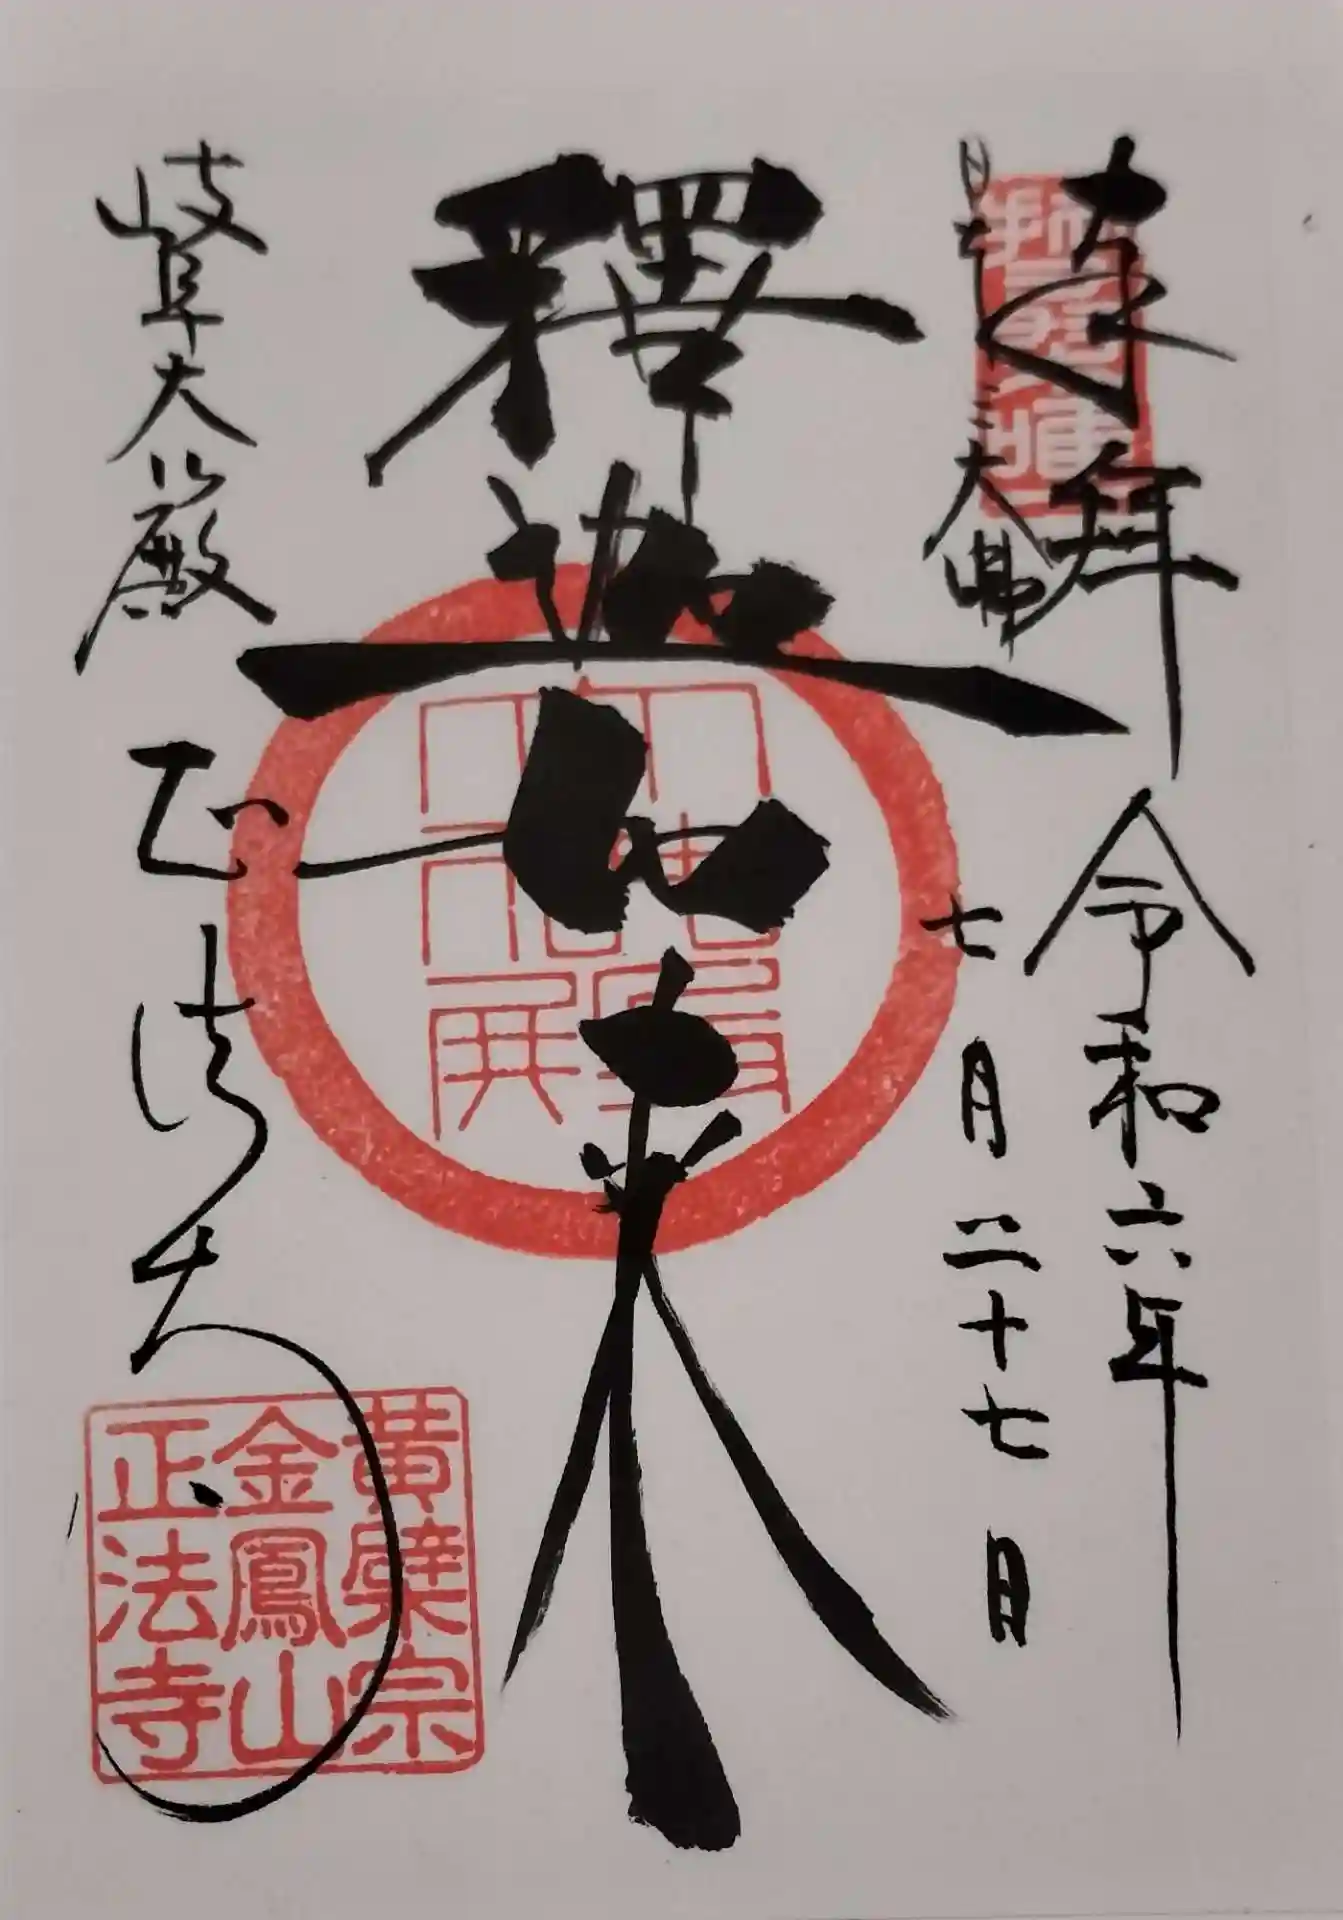 奉拜 令和六年
七月二十七日
日本三大佛
釋迦如來
岐阜大仏殿 正法寺
黄檗宗
金鳳山
正法寺